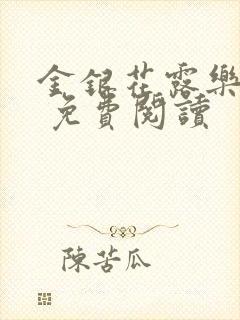 金銀花露樂
免費閱讀
陳苦瓜